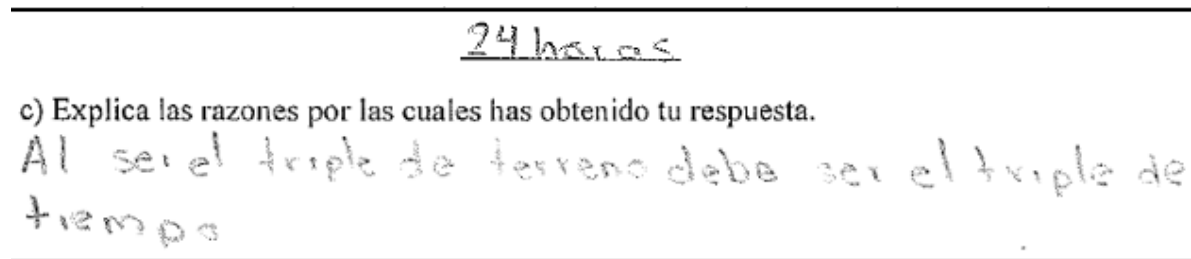 24 horas
c) Explica las razones por las cuales has obtenido tu respuesta.
Al ser el triple de terreno debe ser el triple de
tiempo